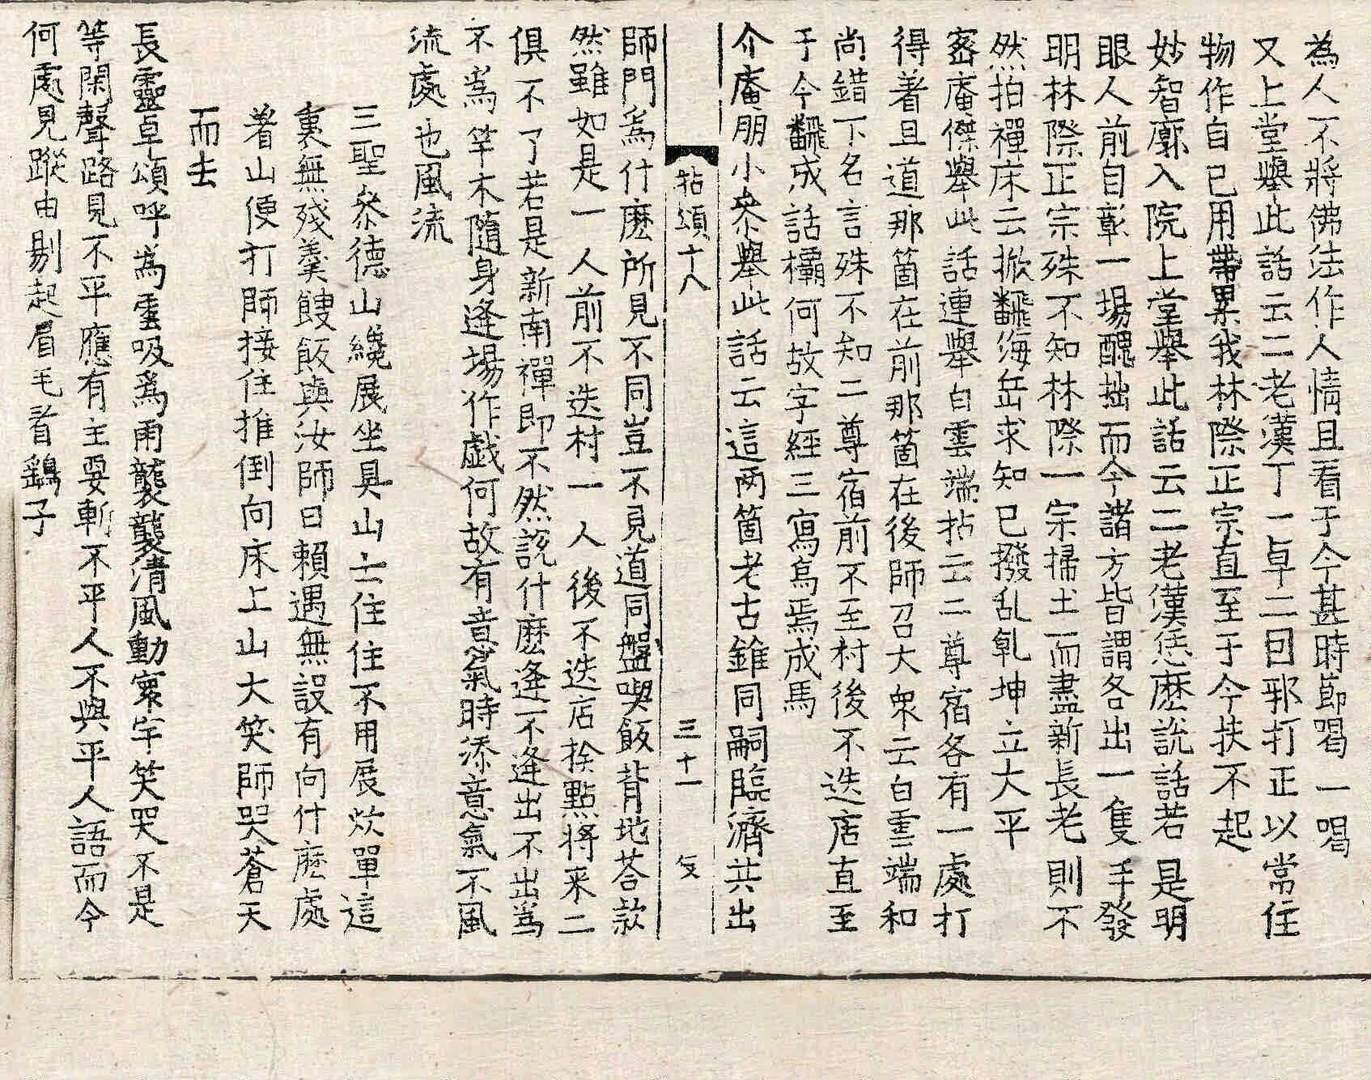 為人不將佛法作人情且看于今甚時節喝一喝
又上堂舉此話云二老漢丁一卓二回邪打正以常住
物作自己用帶累我林際正宗直至于今扶不起
妙智廓入院上堂舉此話云二老漢恁麽說話若是明
眼人前自彰一場醜拙而今諸方皆謂各出一隻手發
明林際正宗殊不知林際一宗掃土而盡新長老則不
然拍禪床云掀飜海岳求知己撥乱乹坤立大平
密庵傑舉此話連舉白雲端拈云二尊宿各有一處打
得着且道那箇在前那箇在後師召大衆云白雲端和
尚錯下名言殊不知二尊宿前不至村後不迭店直至
于今飜成話欛何故字經三寫烏焉成馬
介庵朋小叅舉此話云這两箇老古錐同嗣臨濟共出
拈頌十八　三十一
師門爲什麽所見不同豈不見道同盤喫飯背地荅款
然雖如是一人前不迭村一人後不迭店挨點將来二
俱不了若是新南禪即不然說什麽逢不逢出不出爲
不爲竿木隨身逢場作戯何故有意氣時添意氣不風
流處也風流
三聖叅德山纔展坐具山云住住不用展炊單這
裏無殘羹餿飯與汝師曰賴遇無設有向什麽處
着山便打師接住推倒向床上山大笑師哭蒼天
而去
長靈卓頌呼爲雲吸爲雨襲襲清風動寰宇笑哭不是
等閑聲路見不平應有主要斬不平人不與平人語而今
何處見蹤由剔起眉毛看鷂子